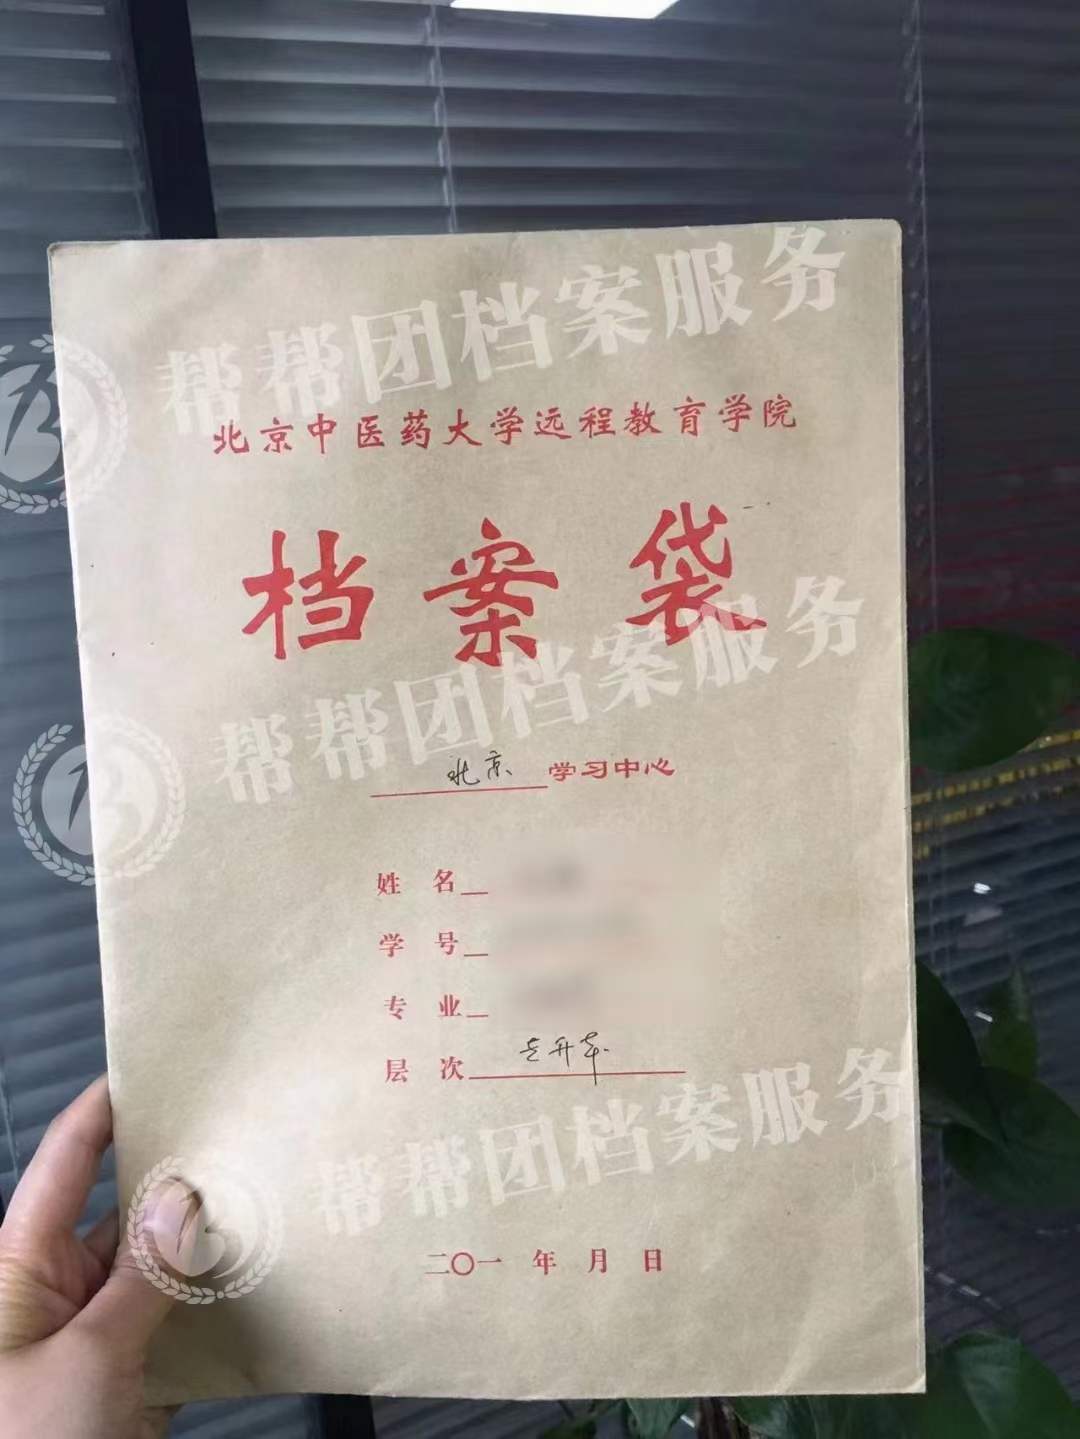 帮帮团档案服务
北京中医药大学远程教育学院
档案袋
帮帮团档案服务
北京 学习中心
姓 名
学 号
专 业
层 次 专升本
帮帮团档案服务
二〇一 年 月 日